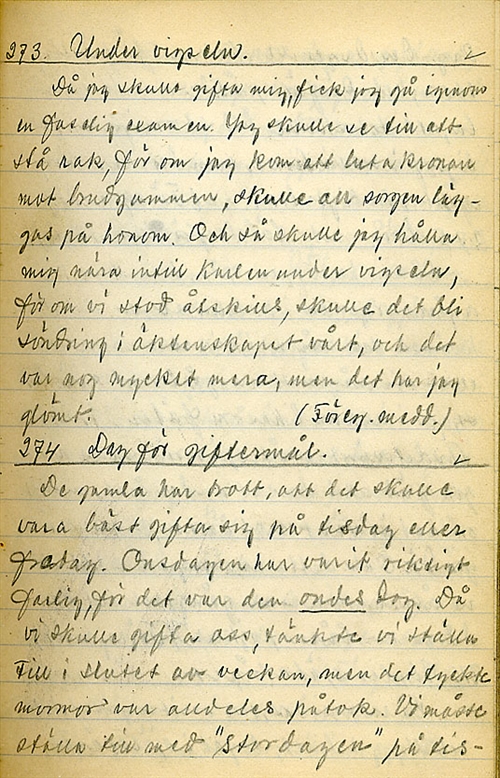 273. Under vigseln.
Då jag skulle gifta mig, fick jag gå igenom
en faselig examen. Jag skulle se till att
stå rak, för om jag kom att luta kronan
mot brudgummen, skulle all sorgen läg-
gas på honom. Och så skulle jag hålla
mig nära intill karlen under vigseln,
för om vi stod åtskills, skulle det bli
söndring i äktenskapet vårt, och det
var nog mycket mera, men det har jag
glömt. (Föreg. medd.)
274 Dag för giftermål.
De gamla har trott, att det skulle
vara bäst gifta sig på tisdag eller
fredag. Onsdagen har varit riktigt
farlig, för det var den ondes dag. Då
vi skulle gifta oss, tänkte vi ställa
till i slutet av veckan, men det tyckte
mormor var alldeles påtok. Vi måste
ställa till med "stordagen" på tis-